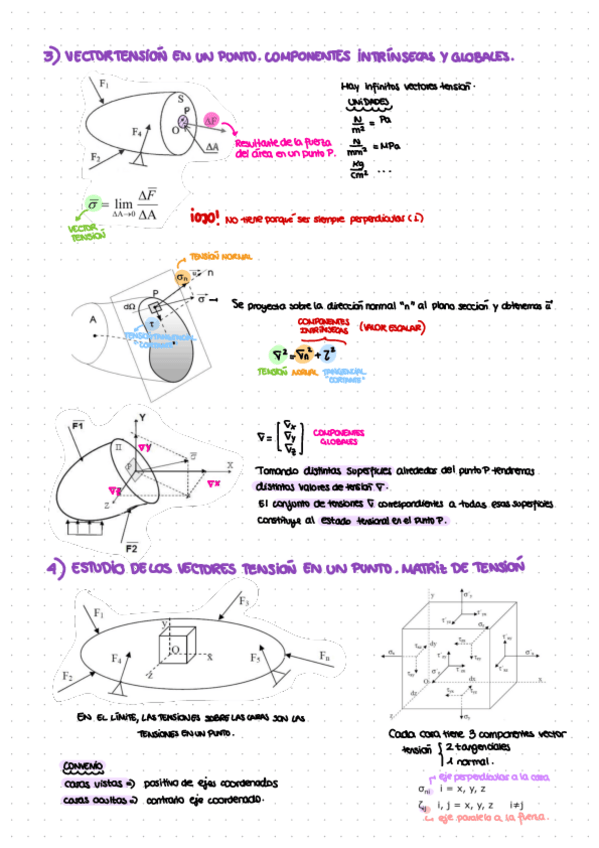 3) VECTOR TENSIÓN EN UN PUNTO. COMPONENTES INTRÍNSECAS Y GLOBALES.
F₁
S
P
ΔF
F₄
O
ΔA
F₂
Resultante de la fuerza
del área en un punto P.
Hay infinitos vectores tensión.
UNIDADES
N/m² = Pa
N/mm² = MPa
Kg/cm² ...
σ = lim ΔF/ΔA
ΔA→0
VECTOR
TENSIÓN
¡OJO! NO tiene porqué ser siempre perpendicular (⊥)
TENSIÓN NORMAL
σn
n
P
σ
dΩ
τ
A
Se proyecta sobre la dirección normal "n" al plano sección y obtenemos
COMPONENTES
INTRÍNSECAS (VALOR ESCALAR)
σ² = σn² + τ²
TENSIÓN NORMAL TANGENCIAL
"CORTANTE"
F1
Y
Π
σy
P
σ
X
σx
σz
z
F2
σ = [σx σy σz] COMPONENTES
GLOBALES
Tomando distintas superficies alrededor del punto P tendremos
distintos valores de tensión σ.
El conjunto de tensiones σ correspondientes a todas esas superficies
constituye al estado tensional en el punto P.
4) ESTUDIO DE LOS VECTORES TENSIÓN EN UN PUNTO. MATRIZ DE TENSIÓN
F₁
F₃
y
O
x
z
F₄
F₅
Fn
F₂
EN EL LÍMITE, LAS TENSIONES SOBRE LAS CARAS SON LAS
TENSIONES EN UN PUNTO.
CONVENIO
caras vistas => positivo de ejes coordenados
caras ocultas => contrario eje coordenado.
y
dy
O
dx
x
dz
z
Cada cara tiene 3 componentes vector
tensión { 2 tangenciales
1 normal.
eje perpendicular a la cara
σni i = x, y, z
ζij i, j = x, y, z i≠j
eje paralelo a la fuerza.